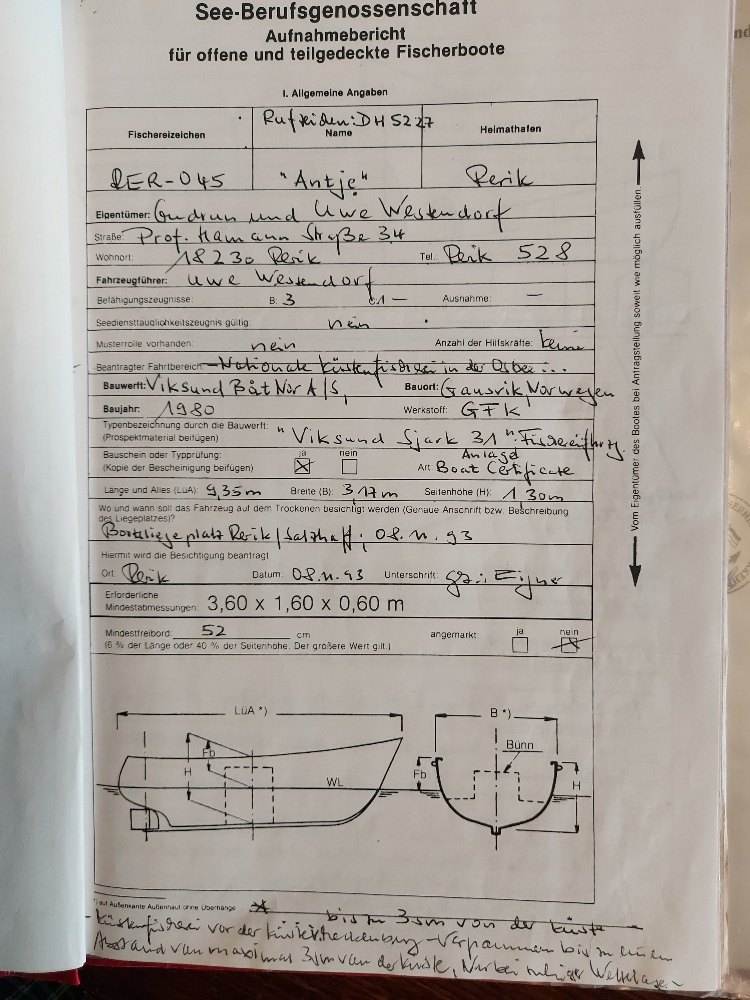 See-Berufsgenossenschaft
Aufnahmebericht
für offene und teilgedeckte Fischerboote
I. Allgemeine Angaben
Fischereizeichen Rufzeichen: DH 5227 Name Heimathafen
RER-045 "Antje" Rerik
Eigentümer: Gudrun und Uwe Westendorf
Straße: Prof. Hamann Straße 34
Wohnort: 18230 Rerik Tel.: Rerik 528
Fahrzeugführer: Uwe Westendorf
Befähigungszeugnisse: B: 3 — Ausnahme: —
Seediensttauglichkeitszeugnis gültig: nein
Musterrolle vorhanden: nein Anzahl der Hilfskräfte: keine
Beantragter Fahrtbereich: Nationale Küstenfischerei in der Ostsee
Bauwerft: Viksund Båt Nor A/S, Bauort: Gausvik, Norwegen
Baujahr: 1980 Werkstoff: GFK
Typenbezeichnung durch die Bauwerft:
(Prospektmaterial beifügen) "Viksund Sjark 31"
Bauschein oder Typprüfung: ja nein Anlage
(Kopie der Bescheinigung beifügen) Art Boat Certificate
Länge und Alles (LüA): 9,35m Breite (B): 3,17m Seitenhöhe (H): 1,30m
Wo und wann soll das Fahrzeug auf dem Trockenen besichtigt werden (Genaue Anschrift bzw. Beschreibung
des Liegeplatzes)?
Bootsliegeplatz Rerik / Salzhaff, 08.11.93
Hiermit wird die Besichtigung beantragt
Ort: Rerik Datum: 08.11.93 Unterschrift: gez.: Eigner
Erforderliche
Mindestabmessungen: 3,60 x 1,60 x 0,60 m
Mindestfreibord: 52 cm angemarkt ja nein
(6 % der Länge oder 40 % der Seitenhöhe. Der größere Wert gilt.)
Vom Eigentümer des Bootes bei Antragstellung soweit wie möglich ausfüllen.
LüA *) B *)
Fb H WL Bünn Fb H
*) auf Außenkante Außenhaut ohne Überhänge
bis zu 3sm von der Küste
Küstenfischerei vor der Küste Mecklenburg-Vorpommern bis zu einem
Abstand von maximal 3sm von der Küste, Nur bei ruhiger Wetterlage.